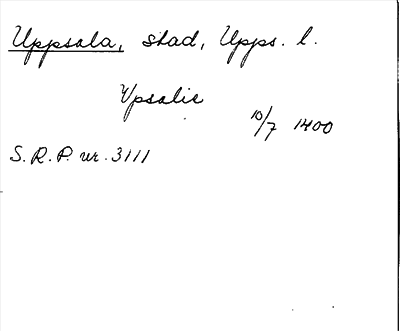 Uppsala, stad, Upps. l.
Vpsalie
10/7 1400
S.R.P. nr. 3111